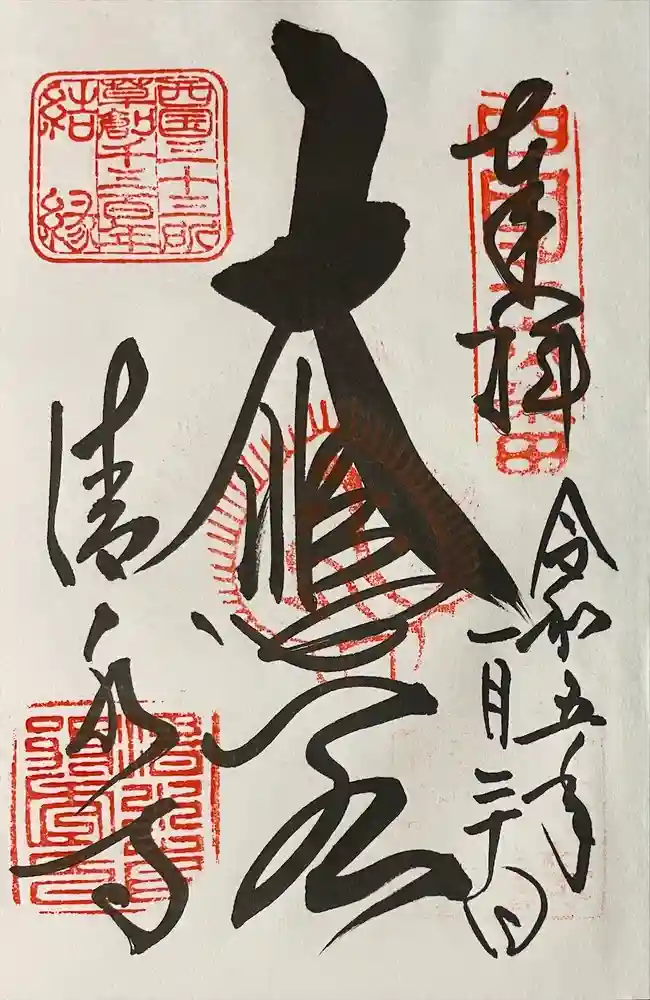 奉拝
西国十六番
令和五年
一月二十日
大悲閣
清水寺
西国三十三所
草創千三百年
結縁